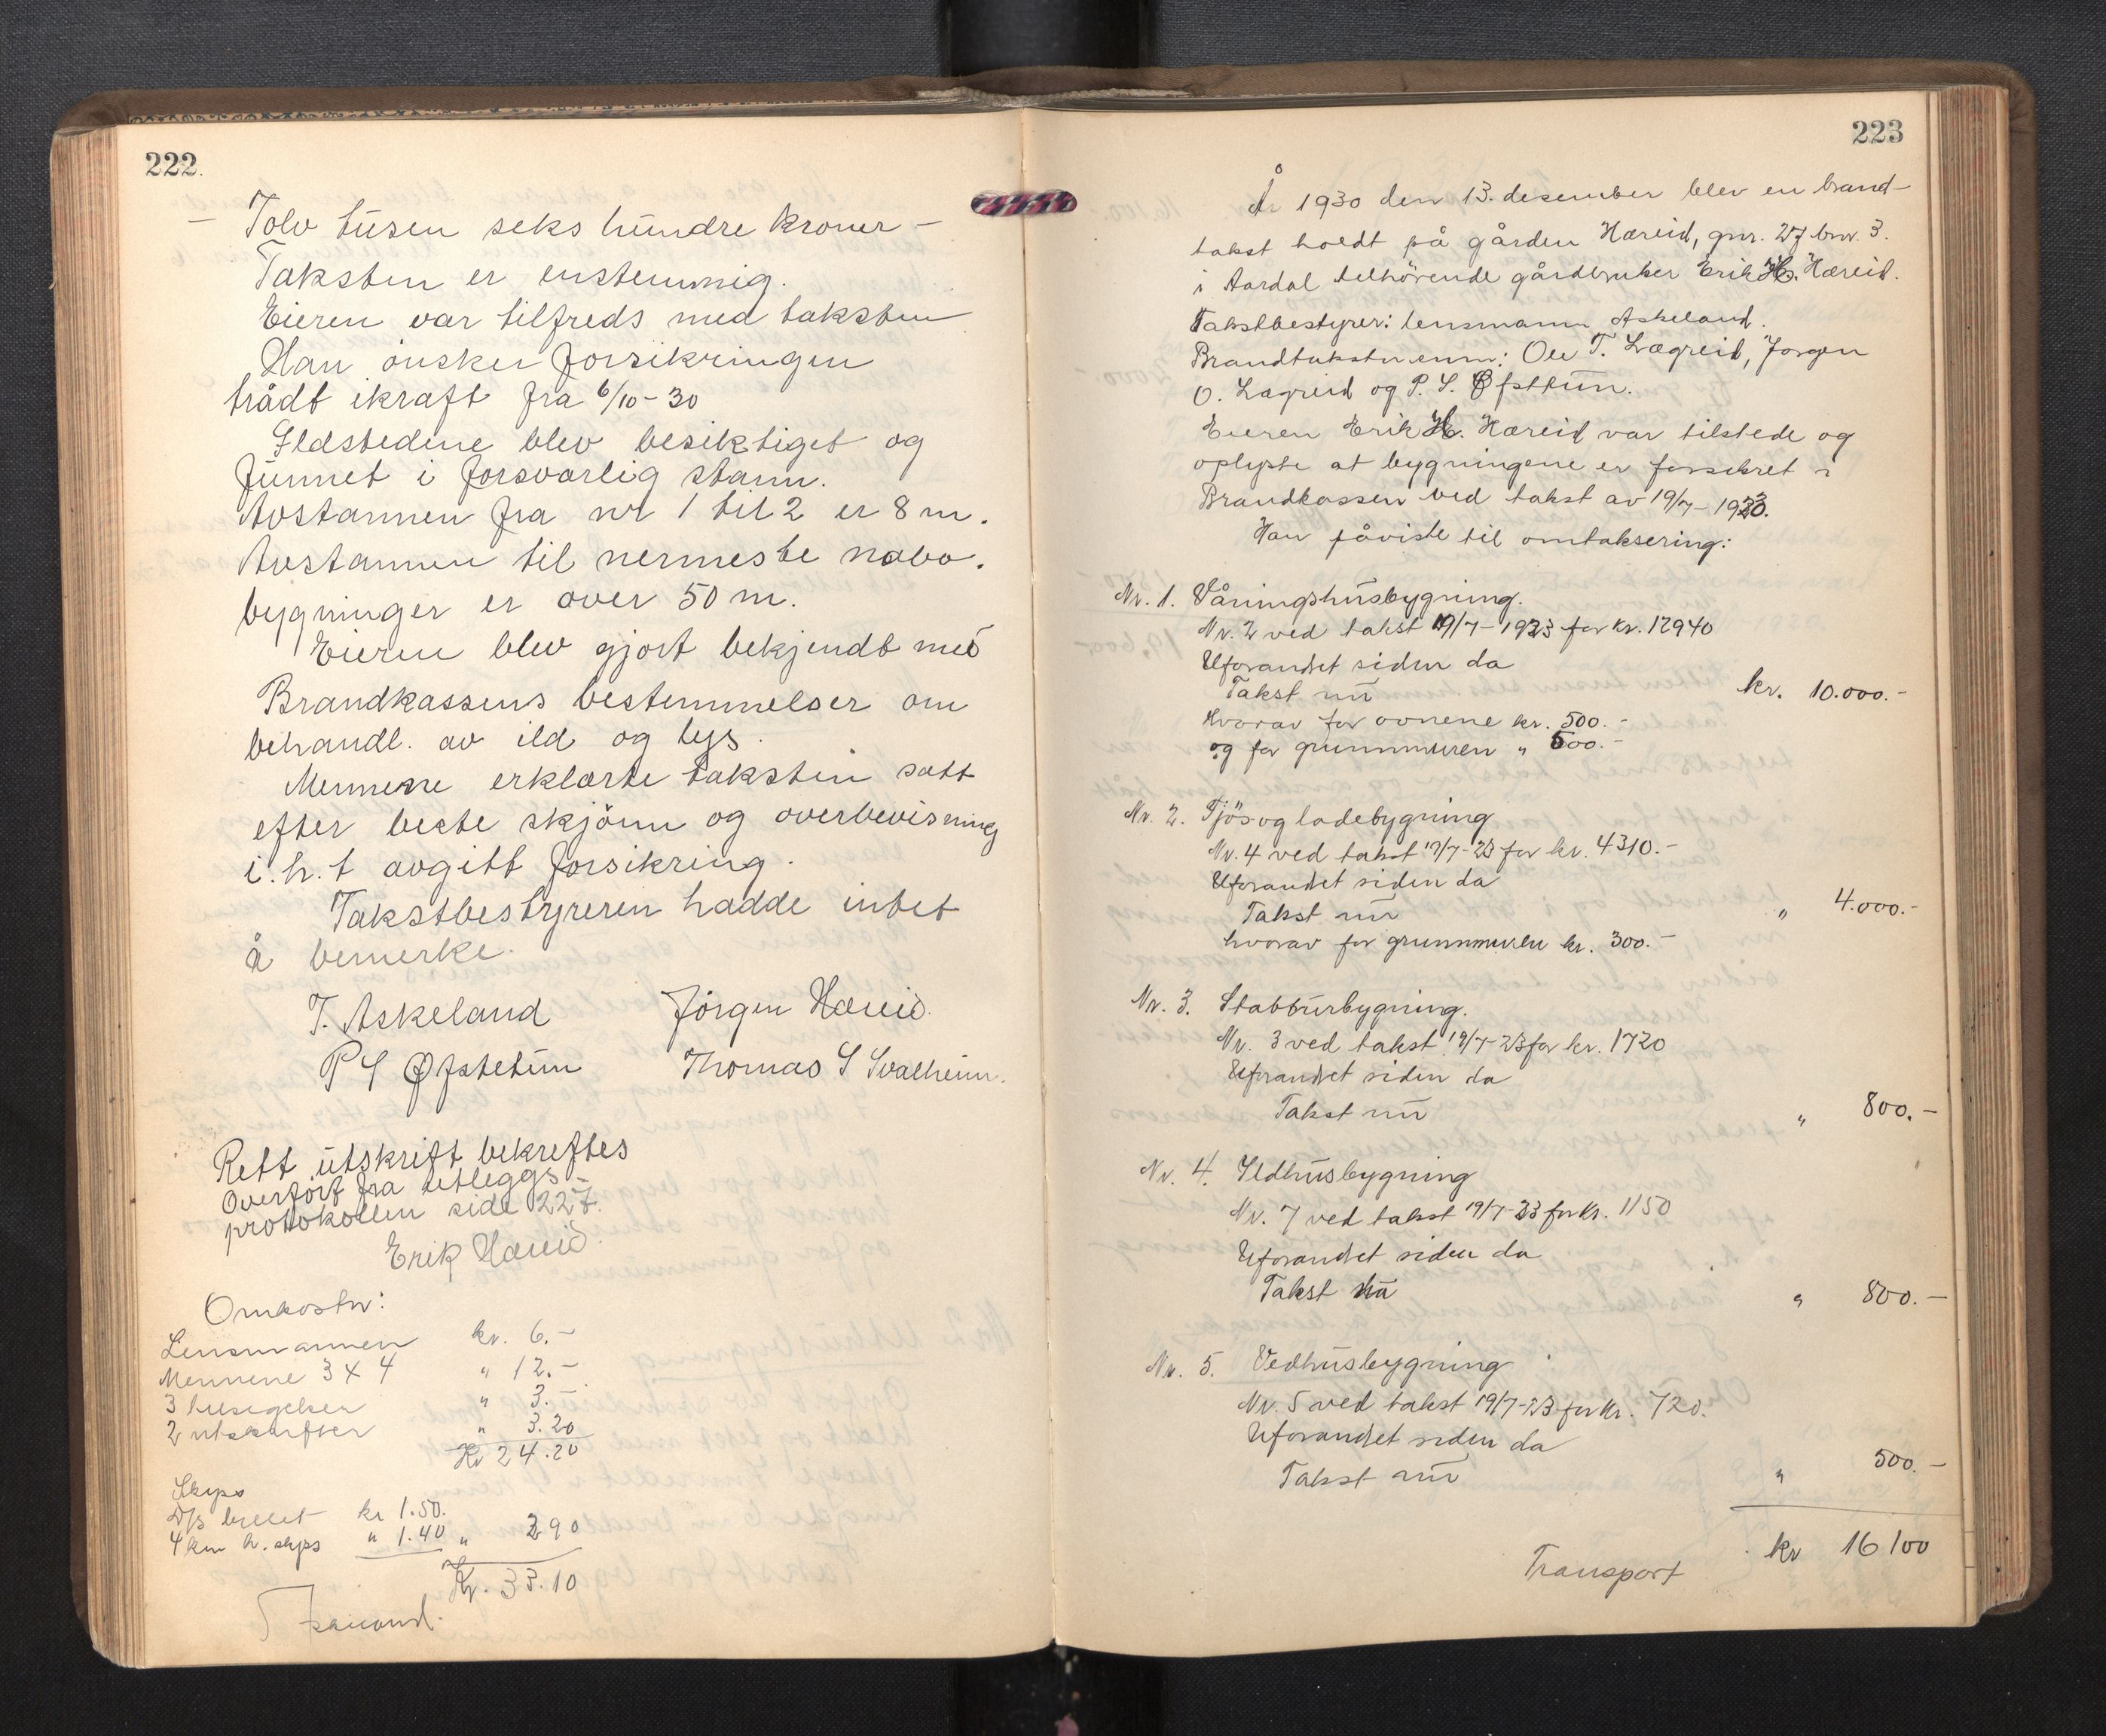 222.
— Tolv tusen seks hundre kroner —
Taksten er enstemmig.
Eieren var tilfreds med taksten
Han ønsker forsikringen
trådt ikraft fra 6/10-30
Ildstedene blev besiktiget og
funnet i forsvarlig stann.
Avstannen fra nr 1 til 2 er 8 m.
Avstannen til nermeste nabo.
bygninger er over 50 m.
Eieren blev gjort bekjendt med
Brandkassens bestemmelser om
behandl. av ild og lys.
Mennene erklærte taksten satt
efter beste skjönn og overbevisning
i.h.t avgitt forsikring.
Takstbestyreren hadde intet
å bemerke.
T. Askeland Jörgen Hæreid.
P S Øfstetun Thomas S Svalheim.
Rett utskrift bekreftes
Overfört fra utleggs-
protokollen side 227.
Erik Hæreid.
Omkostn:
Lensmannen kr. 6.-
Mennene 3 x 4 " 12.-
3 " 3.-
2 utskrifter " 3.20
Kr 24.20
Skyss
D/s billet kr 1.50.
4 km h. skyss " 1.40 " 2 90
Kr. 33.10
223
År 1930 den 13. desember blev en brand-
takst holdt på gården Hæreid, gnr. 27 bnr. 3.
i Aardal tilhörende gårdbruker Erik H. Hæreid.
Takstbestyrer: lensmann Askeland.
Brandtakstmenn: Ole T. Lægreid, Jørgen
O. Lægreid og P. S. Øfsttun.
Eieren Erik H. Hæreid var tilstede og
oplyste at bygningene er forsikret i
Brandkassen ved takst av 19/7-1923.
Han påviste til omtaksering:
Nr. 1. Våningshusbygning.
Nr. 2 ved takst 19/7-1923 for kr. 12940
Uforandret siden da
Takst nu kr. 10.000.-
hvorav for ovnene kr. 500.-
og for grunnmuren " 500.-
Nr. 2. Fjös og ladebygning
Nr. 4 ved takst 19/7-23 for kr. 4310.-
Uforandret siden da
Takst nu " 4.000.-
hvorav for grunnmuren kr. 300.-
Nr. 3. Stabbursbygning.
Nr. 3 ved takst 19/7-23 for kr. 1720
Uforandret siden da
Takst nu " 800.-
Nr. 4. Ildhusbygning
Nr. 7 ved takst 19/7-23 for kr. 1150
Uforandret siden da
Takst nu " 800.-
Nr. 5. Vedhusbygning
Nr. 5 ved takst 19/7-23 for kr. 720.
Uforandret siden da
Takst nu " 500.-
Transport kr 16 100